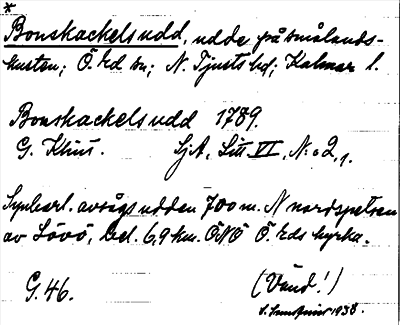 *
Bonskackelsudd, udde på smålands-
kusten; Ö. Ed sn; N. Tjusts hd; Kalmar l.
Bonskackelsudd 1789.
G. Klint. SjA, Litt. VI, N:o 2,1.
Synbarl. avsågs udden 700 m. N nordspetsen
av Lövö, bel. 6,9 km. ÖNÖ Ö. Eds kyrka.
G. 46. (Vänd!)
1938.